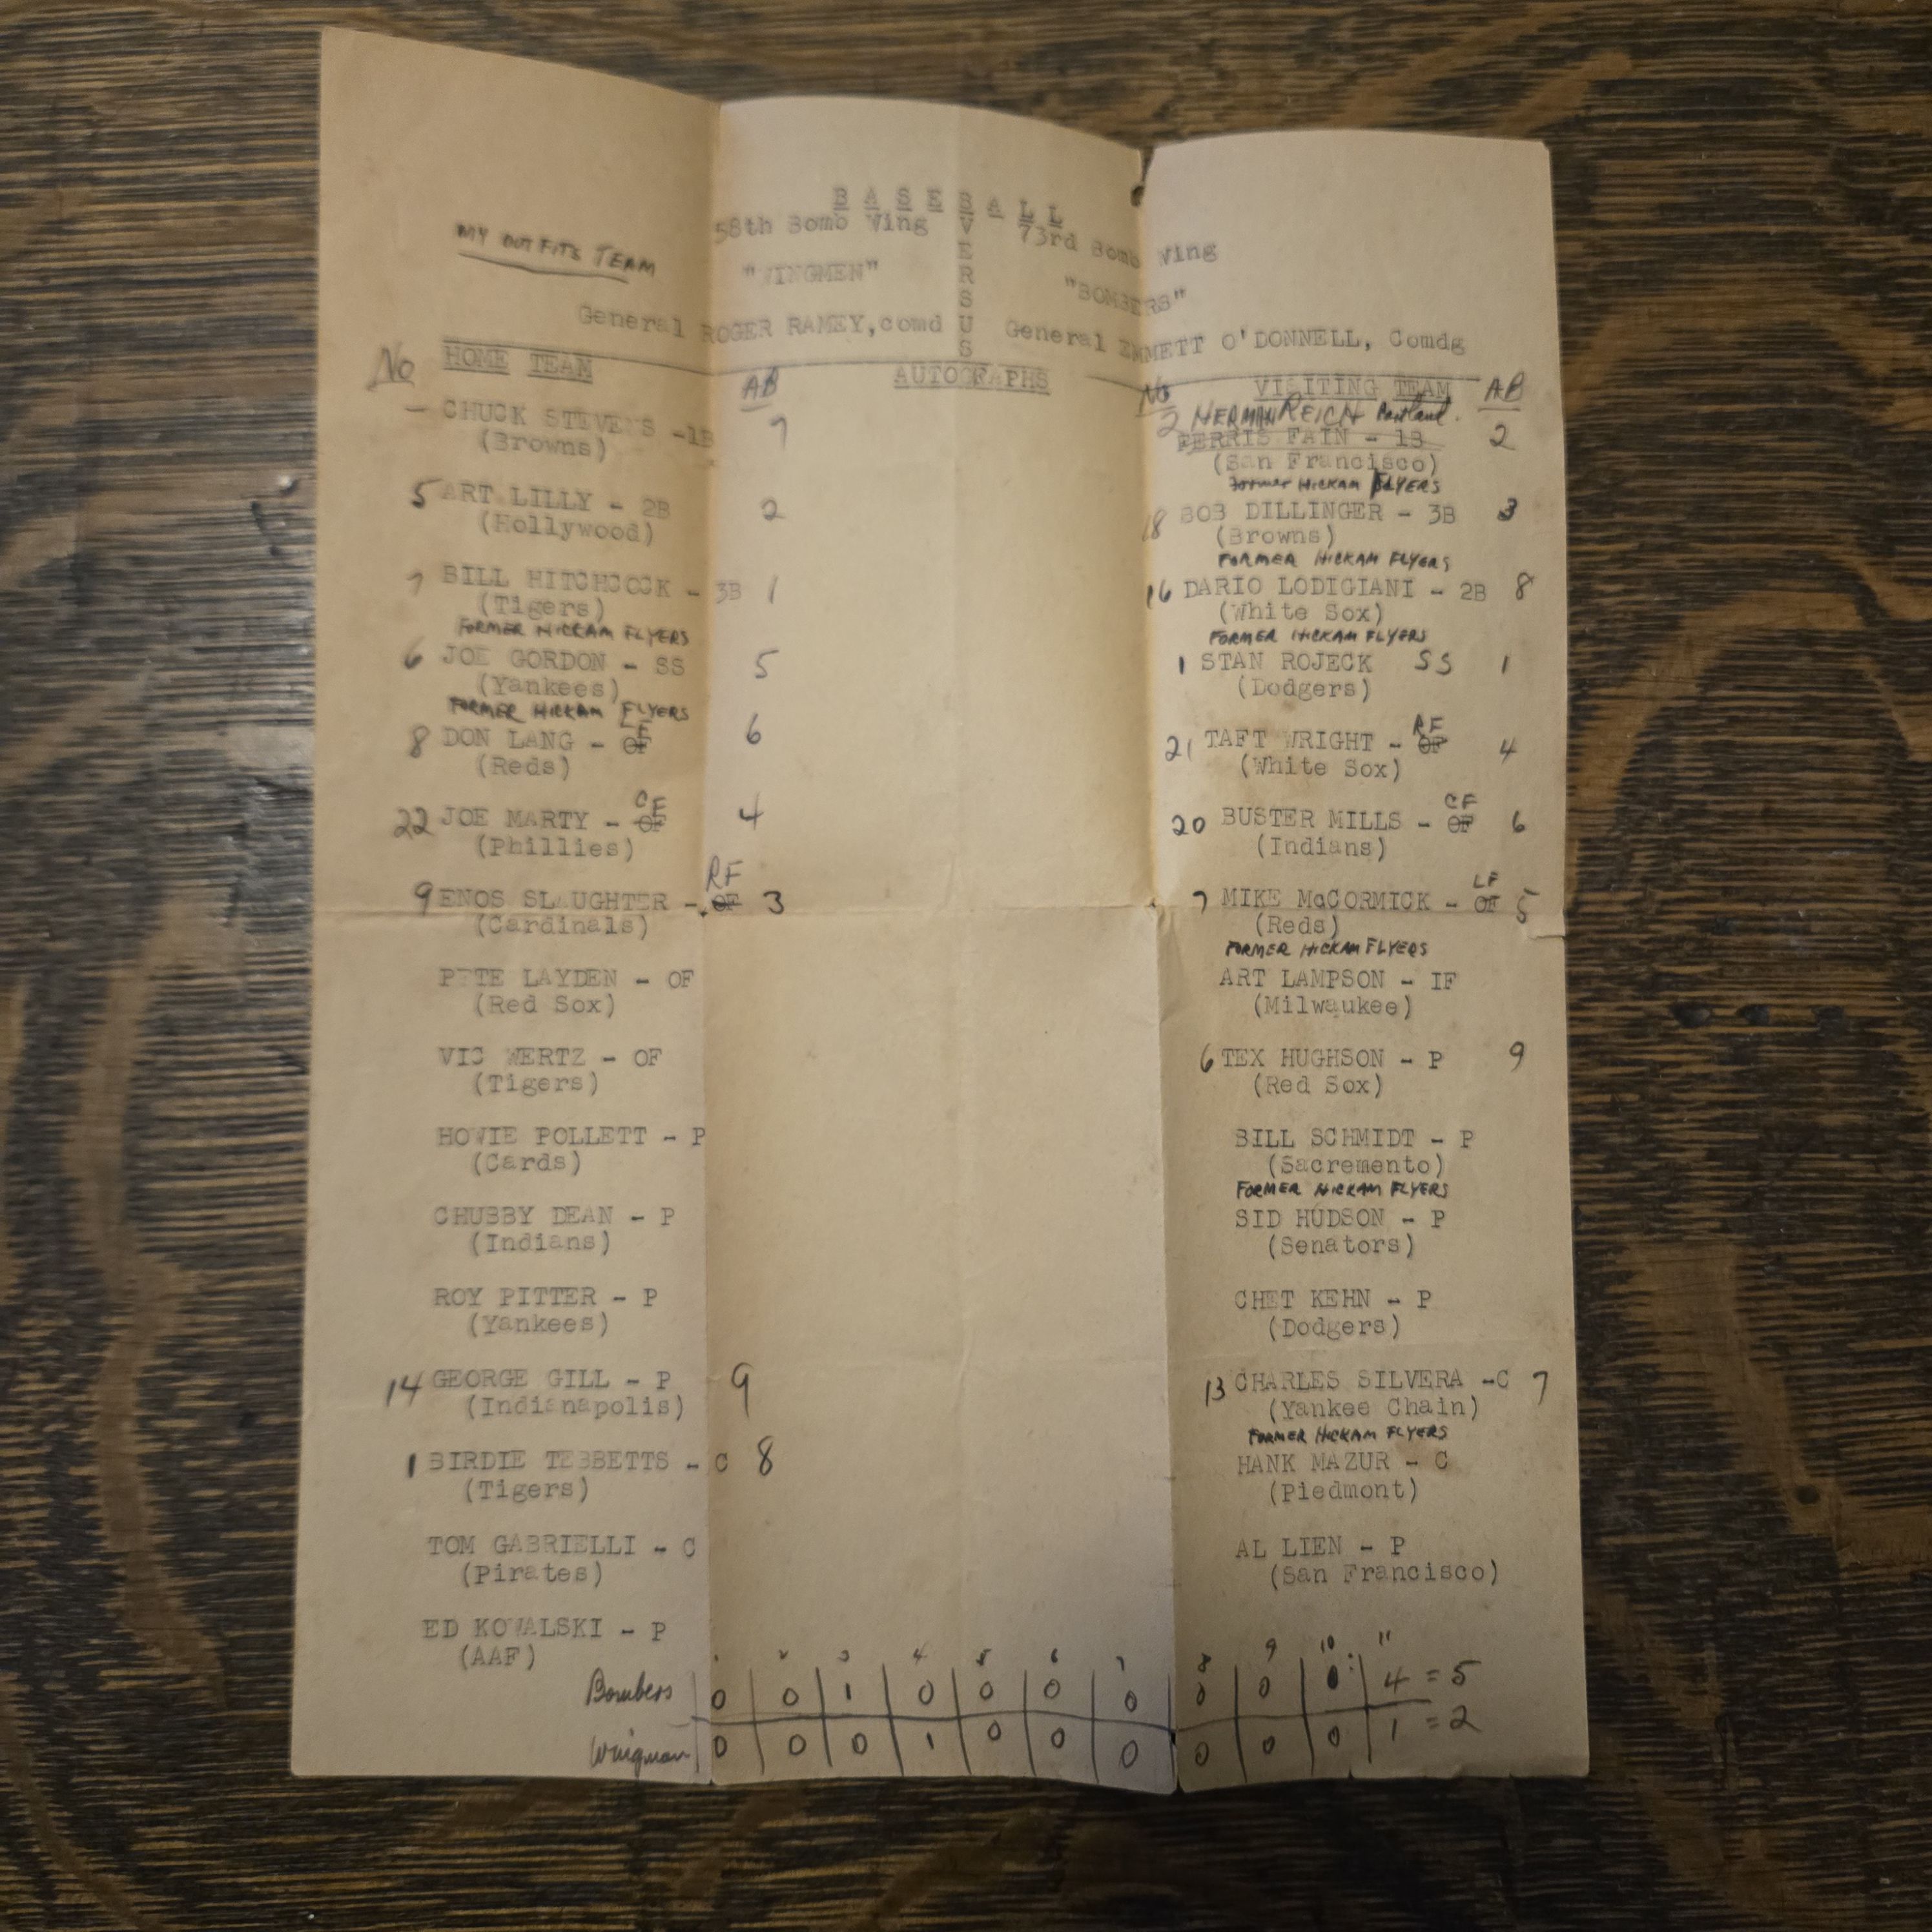 BASEBALL
MY OUTFITS TEAM
58th Bomb Wing VERSUS 73rd Bomb Wing
"WINGMEN" "BOMBERS"
General ROGER RAMEY,comd General EMMETT O'DONNELL, Comdg
No HOME TEAM AB AUTOGRAPHS No VISITING TEAM AB
- CHUCK STEVENS -1B 7
(Browns)
5 ART LILLY - 2B 2
(Hollywood)
7 BILL HITCHCOCK - 3B 1
(Tigers)
FORMER HICKAM FLYERS
6 JOE GORDON - SS 5
(Yankees)
FORMER HICKAM FLYERS
8 DON LANG - OF 6
(Reds)
22 JOE MARTY - OF CF 4
(Phillies)
9 ENOS SLAUGHTER - OF RF 3
(Cardinals)
PETE LAYDEN - OF
(Red Sox)
VIC WERTZ - OF
(Tigers)
HOWIE POLLETT - P
(Cards)
CHUBBY DEAN - P
(Indians)
ROY PITTER - P
(Yankees)
14 GEORGE GILL - P 9
(Indianapolis)
1 BIRDIE TEBBETTS - C 8
(Tigers)
TOM GABRIELLI - C
(Pirates)
ED KOWALSKI - P
(AAF)
2 HERMAN REICH Portland.
FERRIS FAIN - 1B 2
(San Francisco)
Former HICKAM FLYERS
18 BOB DILLINGER - 3B 3
(Browns)
FORMER HICKAM FLYERS
16 DARIO LODIGIANI - 2B 8
(White Sox)
FORMER HICKAM FLYERS
1 STAN ROJECK SS 1
(Dodgers)
21 TAFT WRIGHT - OF RF 4
(White Sox)
20 BUSTER MILLS - OF CF 6
(Indians)
7 MIKE McCORMICK - OF LF 5
(Reds)
FORMER HICKAM FLYERS
ART LAMPSON - IF
(Milwaukee)
6 TEX HUGHSON - P 9
(Red Sox)
BILL SCHMIDT - P
(Sacremento)
FORMER HICKAM FLYERS
SID HUDSON - P
(Senators)
CHET KEHN - P
(Dodgers)
13 CHARLES SILVERA -C 7
(Yankee Chain)
FORMER HICKAM FLYERS
HANK MAZUR - C
(Piedmont)
AL LIEN - P
(San Francisco)
1 2 3 4 5 6 7 8 9 10 11
Bombers 0 0 1 0 0 0 0 0 0 0 4 = 5
Wingman 0 0 0 1 0 0 0 0 0 0 1 = 2